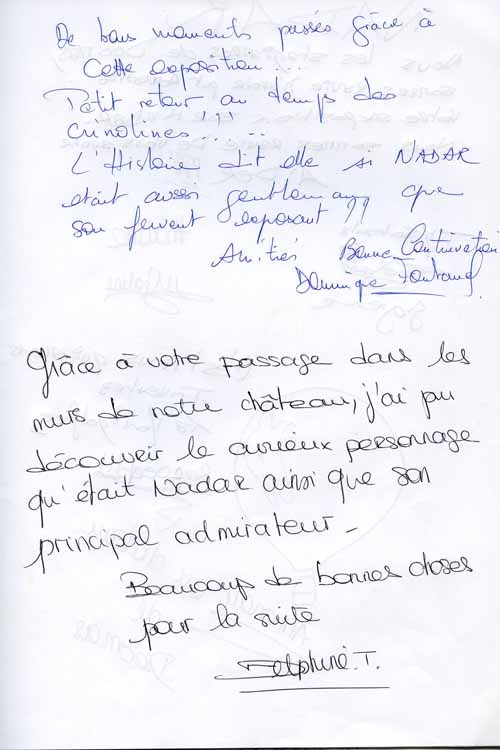 De bons moments passés grâce à
Cette exposition...
Petit retour au temps des
crinolines !!! .....
L'Histoire dit elle si NADAR
était aussi gentleman que
son fervent exposant ??
Amitiés Bonne Continuation
Dominique
Grâce à votre passage dans les
murs de notre château, j'ai pu
découvrir le curieux personnage
qu'était Nadar ainsi que son
principal admirateur_
Beaucoup de bonnes choses
pour la suite
Delphine.T.